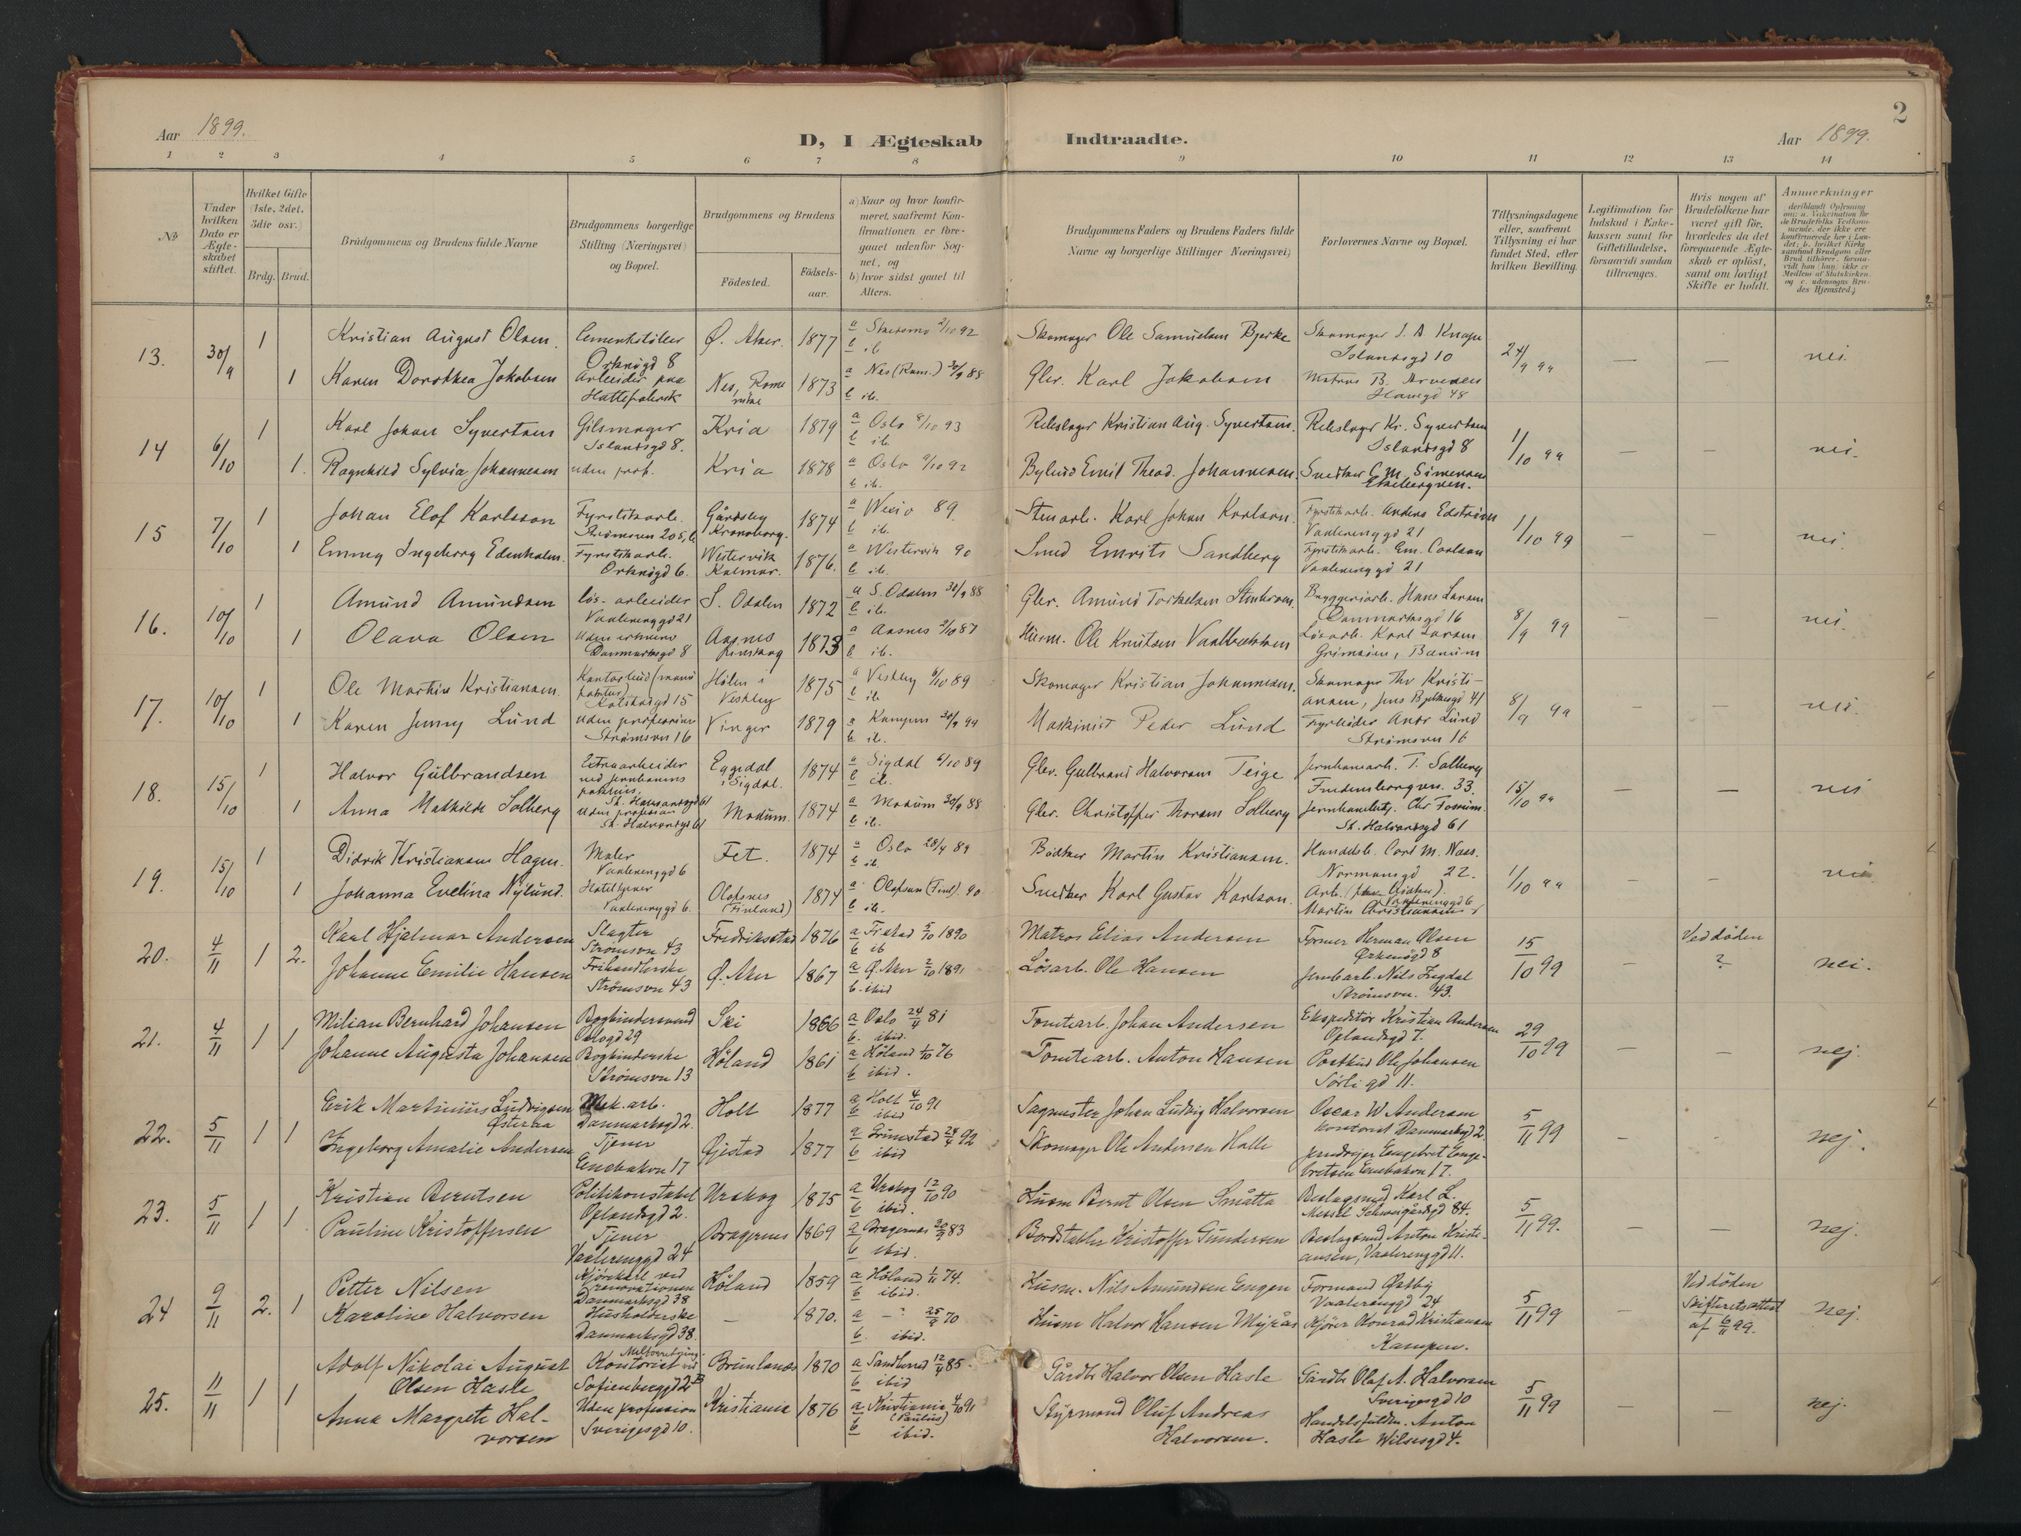 2
Aar 1899.
D, I Ægteskab Indtraadte.
Aar 1899.
1 2 3 4 5 6 7 8 9 10 11 12 13 14
No
Under hvilken Dato er Ægteskabet stiftet.
Hvilket Gifte (1ste, 2det, 3die osv.)
Brdg. Brud.
Brudgommens og Brudens fulde Navne
Brudgommens borgerlige Stilling (Næringsvei) og Bopæl.
Brudgommens og Brudens
Fødested.
Fødselsaar.
a) Naar og hvor konfirmeret, saafremt Konfirmationen er foregaaet udenfor Sognet, og
b) hvor sidst gaaet til Alters.
Brudgommens Faders og Brudens Faders fulde Navne og borgerlige Stillinger (Næringsvei)
Forlovernes Navne og Bopæl.
Tillysningsdagene eller, saafremt Tillysning ei har fundet Sted, efter hvilken Bevilling.
Legitimation for Indskud i Enkekassen samt for Giftetilladelse, forsaavidt saadan tiltrænges.
Hvis nogen af Brudefolkene har været gift før, hvorledes da det foregaaende Ægteskab er opløst, samt om lovligt Skifte er holdt.
Anmerkninger
13. 30/9 1 Kristian August Olsen. Cementstøber Orknøgd 8 Ø. Aker. 1877 a 2/10 92 b ib Skomager Ole Samuelsen Bjerke Skomager J. A. Knape Islandsgd 10 24/9 99 — — nei.
1 Karen Dorothea Jakobsen Arbeider paa Hattefabrik Nes, Romerike 1873 a Nes (Rom.) 30/9 88 b ib. Gbr. Karl Jakobsen Matros B. Arvesen
14 6/10 1 Karl Johan Syvertsen Islandsgd 8. Kria 1879 a Oslo 8/10 93 b ib. Rebslager Kristian Aug. Syvertsen. Rebslager Kr. Syvertsen Islandsgd 8 1/10 99 — — nei.
1. Ragnhild Sylvia Johannesen uden prof. Kria 1878 a Oslo 9/10 92 b ib. Bybud Emil Theod. Johannesen. Snedker C. M. Simensen Ekebergven.
15 7/10 1 Johan Elof Karlsson Fyrstikarb. Strømsvn 205,6 Gårdsby Kronoberg. 1874 a Wexio 89. b ib. Stenarb. Karl Johan Karlson. Fyrstikarb. Anders Edstrøm Vaalerenggd 21 1/10 99 — — nei.
1 Emmy Ingeborg Edenholm. Fyrstikarb. Orknøgd 6. Westervik Kalmar. 1876. a Westervik 90 b ib. Smed Sandberg Fyrstikarb. Em. Carlson Vaalerenggd 21
16. 10/10 1 Amund Amundsen løs-arbeider Vaalerenggd 21 S. Odalen 1872 a S. Odalen 30/9 88 b ib. Gbr. Amund Torkelsen Bryggeriarb. Hans Larsen Danmarksgd 16 8/9 99 — — nei.
1 Olava Olsen Danmarksgd 8 Aasnes Finskog 1873 a Aasnes 2/10 87 b ib. Husm. Ole Knutsen Vaalbækken Løsarb. Karl Larsen Grimsøen, Bærum
17. 10/10 1 Ole Martin Kristiansen. Kontorbud Hølen i Vestby 1875 a Vestby 6/10 89 b ib Skomager Kristian Johannesen. Skomager Thv Kristiansen, Jens Bjelkesgd 41 8/9 99 — — nei.
1 Karen Jenny Lund uden profession Strømsvn 16 Vinger 1879 a Kampen 30/9 94 b ib. Maskinist Peder Lund Fyrbøder Andr Lund Strømsvn 16
18. 15/10 1 Halvor Gulbrandsen Extraarbeider ved jernbanens St. Halvardsgd 61 Eggedal i Sigdal. 1874 a Sigdal 6/10 89 b ib. Gbr. Gulbrand Halvorsen Teige Jernbanearb. T. Solberg Fredensborgven. 33. 15/10 99 — — nei
1 Anna Mathilde Solberg uden profession St. Halvardsgd 61 Modum. 1874 a Modum 30/9 88 b ib. Gbr. Christoffer Thorsen Solberg Chr Fossum. St. Halvardsgd 61
19. 15/10 1 Didrik Kristiansen Hagen. Maler Vaalerenggd 6 Fet. 1874 a Oslo 28/4 89 b ib. Bødker Martin Kristiansen. Carl M. Næss. Normansgd 22. 1/10 99 — — nei
1 Johanna Evelina Nylund. Vaalerenggd 6. Olofsnes (Finland) 1874 a Olofsen (Finl.) 90 b ib. Snedker Karl Gustav Karlson. Arb. Martin Christiansen Vaalerenggd 6
20. 4/11 1 2. Karl Hjalmar Andersen Slagter Strømsvn 43 Fredriksstad 1876 a Frstad 5/10 1890 b ib Matros Elias Andersen Former Herman Olsen Orkenøgd 8 15/10 99 — Ved døden ? nei.
Johanne Emilie Hansen Frihandlerske Strømsvn 43 Ø. Aker 1867 a Ø. Aker 2/10 1891 b. ibid Løsarb. Ole Hansen Jernbarb. Nils Zigdal Strømsvn. 43.
21. 4/11 1 1 Milian Bernhard Johansen Bogbindersvend Oslogd 29 Ski 1866 a Oslo 24/4 81 b. ibid. Tomtearb. Johan Andersen Ekspeditør Kristian Andersen Oplandsgd 7. 29/10 99 — — nej.
Johanne Augusta Johansen Bogbinderske Strømsvn 13 Høland 1861 a Høland 1/10 76 b ibid. Tomtearb. Anton Hansen Postbud Ole Johansen Sørligd 11.
22. 5/11 1 1 Erik Martinius Ludvigsen Østeraa Mek. arb. Danmarksgd 2. Holt 1877 a Holt 4/10 91 b ibid Sagmester Johan Ludvig Halvorsen Oscar W. Andersen kontorist Danmarksgd 2. 5/11 99 — — nej.
Ingeborg Amalie Andersen Tjener Enebakvn 17 Øjestad 1877 a Grimstad 24/4 92 b ibid Skomager Ole Andersen Halle Engebret Engebretsen Enebakvn 17.
23. 5/11 1 1 Kristian Berntsen Politikonstabel Oplandsgd 2. Urskog 1875 a Urskog 12/10 90 b ibid. Husm Bernt Olsen Småtta Beslagsmed Karl L. Messel Schweigårdsgd 84. 5/11 99. — — nej.
Pauline Kristoffersen Tjener Vaalerenggd 24 Bragernes 1869 a Bragernes 30/9 83 b ibid. Bordstabler Kristoffer Gundersen Beslagsmd. Anton Kristiansen, Vaalerenggd 11.
24 9/11 2. 1 Petter Nilsen Kjørekarl ved Renovationen Danmarksgd 38 Høland 1859 a Høland 1/11 74. b ibid. Husm. Nils Amundsen Engen Formand Østby Vaalerenggd 24 5/11 99 — Ved døden Skifteretsattest af 6/11 99. nej.
Karoline Halvorsen Husholderske Danmarksgd 38. — 1870. a — 25/9 70 b. ibid. Husm Halvor Hansen Myrås Kjører Konrad Kristiansen Kampen.
25. 11/11 1 1 Adolf Nikolai August Olsen Hasle Kontorist Sofienberggd 2B Brunlanes 1870 a Sandherred 12/4 85. b ibid Gårdbr Halvor Olsen Hasle Gårdbr Olaf A. Halvorsen Sverigesgd 10 5/11 99 — — nej.
Anna Margrete Halvorsen Uden profession Sverigesgd 10. Kristiania 1876 a Kristiania 4/10 91 (Paulus) b ibid. Styrmand Oluf Andreas Halvorsen. Handelsfuldm. Anton Hasle Wilsesgd 4.